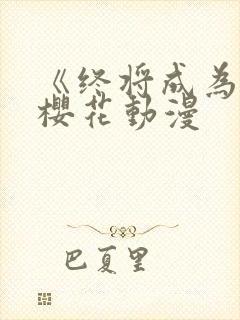 《终将成为
樱花動漫
巴夏里